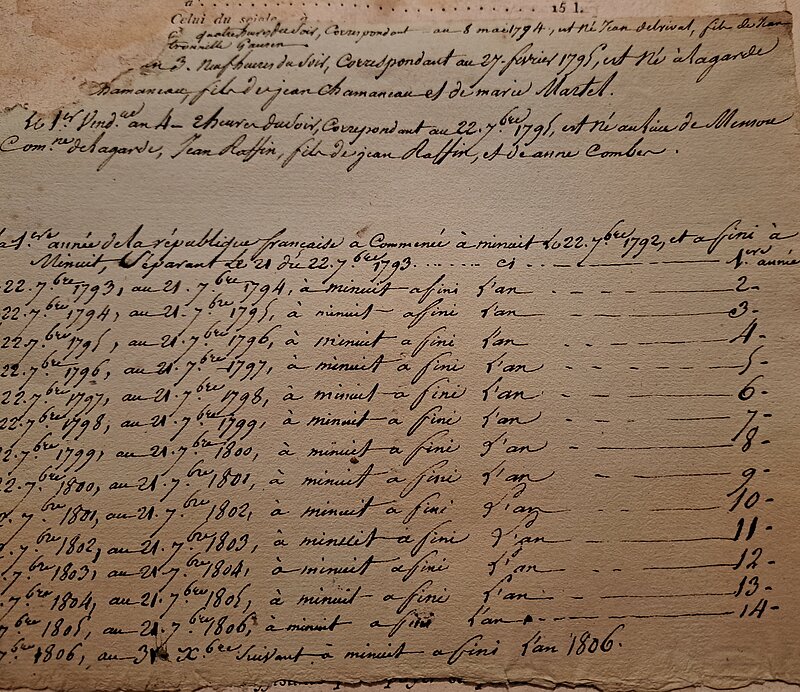 15 l.
Celui du
à quatre heures du Soir, Correspondant au 8 mai 1794, est né Jean delrival, fils de Jean
an 3. Neuf heures du Soir, Correspondant au 27. février 1795, est Né à lagarde
Chamaneau, fils de jean Chamaneau et de marie Martel.
Le 1er Vendre an 4 - 2 heures du Soir, Correspondant au 22. 7bre 1795, est Né au lieu de
Comne de lagarde, Jean Raffin, fils de jean Raffin, et de anne Combes.
la 1ere année de la république française a Commencé à minuit Le 22. 7bre 1792, et a fini à
Minuit, Séparant Le 21 du 22. 7bre 1793 ...... ci - - - - 1ere année
22. 7bre 1793, au 21. 7bre 1794, à minuit a fini L'an 2-
22. 7bre 1794, au 21. 7bre 1795, à minuit a fini L'an 3-
22. 7bre 1795, au 21. 7bre 1796, à minuit a fini L'an 4-
22. 7bre 1796, au 21. 7bre 1797, à minuit a fini L'an 5-
22. 7bre 1797, au 21. 7bre 1798, à minuit a fini L'an 6-
22. 7bre 1798, au 21. 7bre 1799, à minuit a fini L'an 7-
7bre 1799, au 21. 7bre 1800, à minuit a fini L'an 8-
22. 7bre 1800, au 21. 7bre 1801, à minuit a fini L'an 9-
7bre 1801, au 21. 7bre 1802, à minuit a fini L'an 10-
7bre 1802, au 21. 7bre 1803, à minuit a fini L'an 11-
7bre 1803, au 21. 7bre 1804, à minuit a fini L'an 12-
7bre 1804, au 21. 7bre 1805, à minuit a fini L'an 13-
7bre 1805, au 21. 7bre 1806, à minuit a fini L'an 14-
7bre 1806, au 31 Xbre Suivant à minuit a fini L'an 1806.